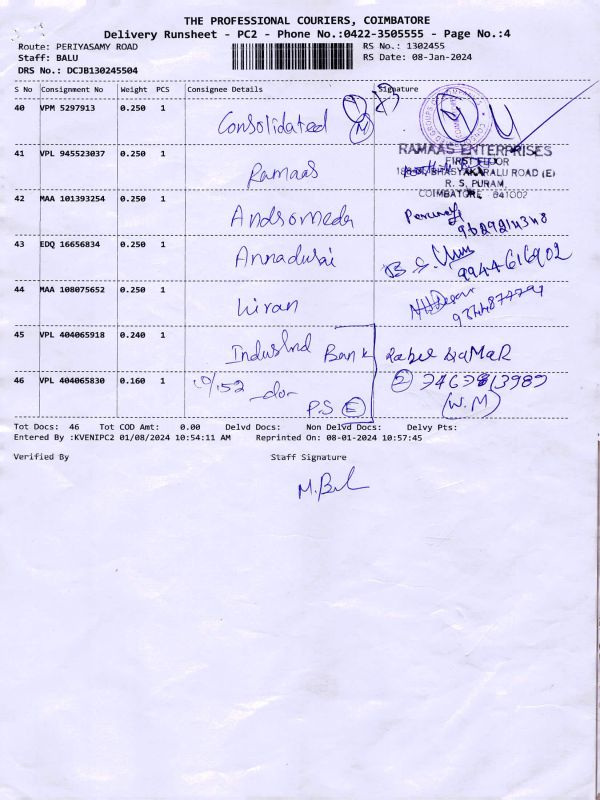 THE PROFESSIONAL COURIERS, COIMBATORE
Delivery Runsheet - PC2 - Phone No.:0422-3505555 - Page No.:4
Route: PERIYASAMY ROAD RS No.: 1302455
Staff: BALU RS Date: 08-Jan-2024
DRS No.: DCJB130245504
S No Consignment No Weight PCS Consignee Details Signature
40 VPM 5297913 0.250 1 Consolidated
41 VPL 945523037 0.250 1 Ramaas
RAMAAS ENTERPRISES
FIRST FLOOR
BHASYAKARALU ROAD (E)
R. S. PURAM,
COIMBATORE - 641002
42 MAA 101393254 0.250 1 Andromeda
43 EDQ 16656834 0.250 1 Annadurai 9944616902
44 MAA 108075652 0.250 1 Kiran
45 VPL 404065918 0.240 1 IndusInd Bank
46 VPL 404065830 0.160 1 -do-
P.S (E) (W.M)
Tot Docs: 46 Tot COD Amt: 0.00 Delvd Docs: Non Delvd Docs: Delvy Pts:
Entered By :KVENIPC2 01/08/2024 10:54:11 AM Reprinted On: 08-01-2024 10:57:45
Verified By Staff Signature